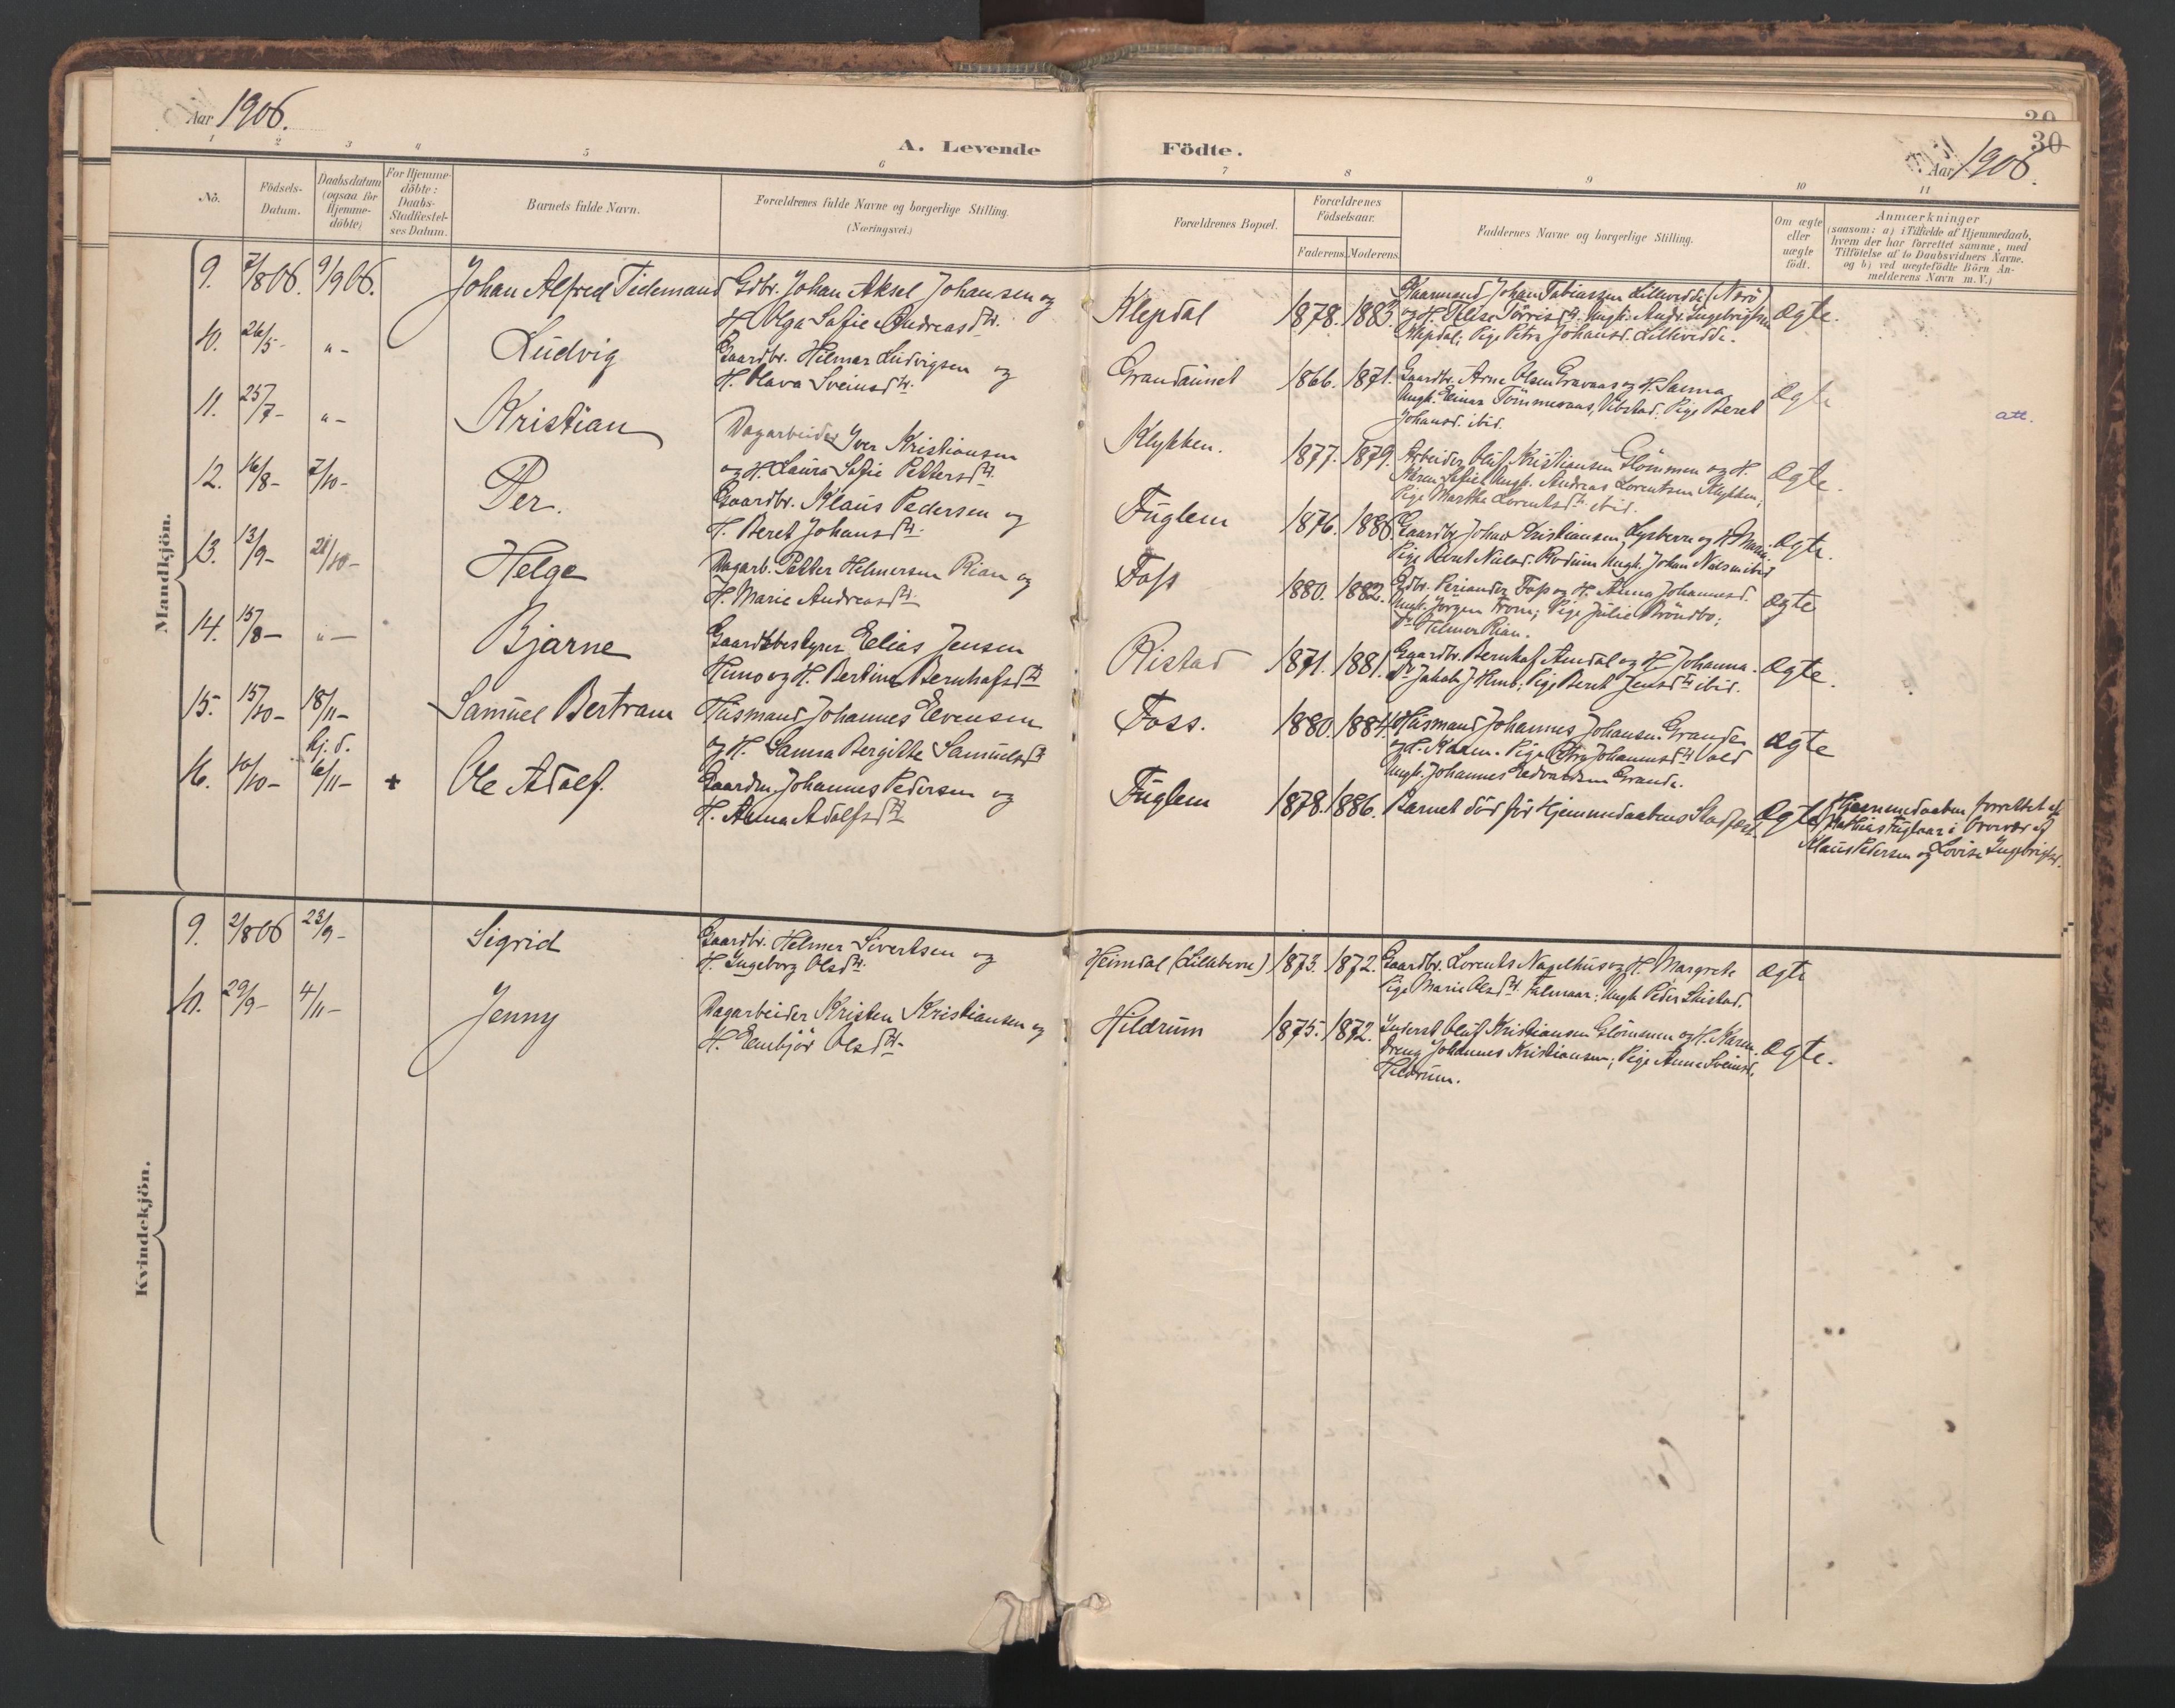 Aar 1906.
A. Levende
Födte.
30
30
Aar 1906.
1 2 3 4 5 6 7 8 9 10 11
No.
Födsels-
Datum.
Daabsdatum
(ogsaa for
Hjemme-
döbte)
For Hjemme-
döbte:
Daabs-
Stadfæstel-
ses Datum.
Barnets fulde Navn.
Forældrenes fulde Navne og borgerlige Stilling.
(Næringsvei.)
Forældrenes Bopæl.
Forældrenes
Födselsaar.
Faderens. Moderens.
Faddernes Navne og borgerlige Stilling.
Om ægte
eller
uægte
födt.
Anmærkninger
(saasom: a) i Tilfælde af Hjemmedaab,
hvem der har forrettet samme, med
Tilföielse af to Daabsvidners Navne.
og b) ved uægtefödte Börn An-
melderens Navn m.V.)
Mandkjön.
9. 7/8 06. 9/9 06. Johan Alfred Tidemand Gdbr. Johan Aksel Johansen og
H. Olga Sofie Andreasdtr.
Klepdal 1878. 1883. Kaarmand Johan Tobiassen Lillevedde (Nærö)
og H. Elise Torrisdtr. Ungk. Andr. Ingebrigtsen
Klepdal; Pige Petra Johansd. Lillevedde.
ægte.
10. 26/5- "- Ludvig Gaardbr. Hilmar Ludvigsen og
H. Olava Sveinsdtr.
Grandaunet 1866. 1871. Gaardbr. Arne Olsen Gravaas og H. Sanna
Ungk. Einar Tömmeraas, Vibstad. Pige Beret
Johansd. ibid.
ægte
att.
11. 25/7- "- Kristian Dagarbeider Iver Kristiansen
og H. Laura Sofie Pettersdtr.
Klykken. 1877. 1879. Arbeider Oluf Kristiansen Glömmen og H.
Karen Sofie; Ungk. Andreas Lorentsen Klykken;
Pige Marthe Lorentsdtr. ibid.
ægte.
12. 16/8- 7/10- Per. Gaardbr. Klaus Pedersen og
H. Beret Johansdtr.
Fuglem 1876. 1886. Gaardbr. Johan Kristiansen Lysberen og H. Maria.
Pige Beret Nielsd. Rodum Ungk. Johan Nielsen ibid
ægte.
13. 13/9- 21/10- Helge Dagarb. Petter Helmersen Rian og
H. Marie Andreasdtr.
Foss 1880. 1882. Gdbr. Periander Foss og H. Anna Johannesd.
Ungk. Jörgen From; Pige Julie Bröndbo;
Do Hilmer Rian.
ægte
14. 15/8- "- Bjarne Gaardsbestyrer Elias Jensen
Hemo og H. Bertine Bernhofsdtr
Ristad 1871. 1881. Gaardbr. Bernhof Amdal og H. Johanna.
Do Jakob J. Hmo; Pige Beret Jensdtr ibid.
ægte.
15. 15/10- 18/11- Samuel Bertram Husmand Johannes Evensen
og H. Sanna Bergitte Samuelsdtr
Foss. 1880. 1884. Husmand Johannes Johansen Grande
og H. Karen. Pige Petra Johannesdtr Vold
Ungk. Johannes Edvardsen Grande.
ægte
16. 10/10- hj. d.
6/11- + Ole Adolf. Gaardm. Johannes Pedersen og
H. Anna Adolfsdtr
Fuglem 1878. 1886. Barnet död för Hjemmedaabens Stadfæst.
ægte
Hjemmedaaben forrettet af
Mathias Fuglaar i Overvær af
Klaus Pedersen og Lovise Ingebrigtsd.
Kvindekjön.
9. 2/8 06 23/9- Sigrid Gaardbr. Helmer Sivertsen og
H. Ingeborg Olsdtr.
Heimdal (Lilleberre) 1873. 1872. Gaardbr. Lorents Nagelhus og H. Margrete
Pige Marie Olsdtr. Falmaar; Ungk Peder Skistad.
ægte
10. 29/9- 4/11- Jenny Dagarbeider Kristen Kristiansen og
H. Embjör Olsdtr.
Hildrum 1875. 1872. Inderst Oluf Kristiansen Glömmen og H. Karen.
Dreng Johannes Kristiansen; Pige Anna Sveinsd.
Hildrum.
ægte.